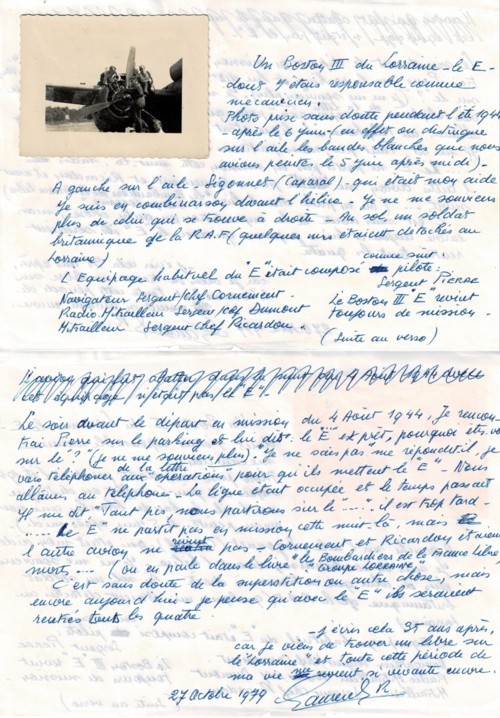 Un Boston III du Lorraine - le E -
dont j'étais responsable comme
mécanicien.
Photo prise sans doute pendant l'été 1944
- après le 6 juin - (en effet on distingue
sur l'aile les bandes blanches que nous
avions peintes le 5 juin après midi) -
A gauche sur l'aile - Sigonnet (Caporal) - qui était mon aide
Je suis en combinaison devant l'hélice - Je ne me souviens
plus de celui qui se trouve à droite - Au sol, un soldat
britannique de la R.A.F (quelques uns étaient détachés au
Lorraine)
L'Equipage habituel du "E" était composé comme suit -
pilote - Sergent Pierre
Navigateur Sergent/Chef Cornement.
Radio Mitrailleur Sergent/Chef Dumont
Mitrailleur Sergent Chef Ricardou.
Le Boston III E revint
toujours de mission -
(Suite au verso)
les équipage n'était pas le "E".
Le soir avant le départ en mission du 4 Août 1944, je rencon-
trai Pierre sur le parking et lui dit: le "E" est prêt, pourquoi êtes-vous
sur le "?" (je ne me souviens plus de la lettre). "Je ne sais pas me répondit-il, je
vais téléphoner aux "operations" pour qu'ils mettent le E" - Nous
allâmes au téléphone - La ligne était occupée et le temps passait
Il me dit "Tant pis, nous partirons sur le "....." il est trop tard -
..... Le "E" ne partit pas en mission cette nuit-là, mais
l'autre avion ne revint pas - Cornement et Ricardou étaient
morts..... (on en parle dans le livre "les Bombardiers de la France libre,
"Groupe Lorraine"
C'est sans doute de la superstition ou autre chose, mais
encore aujourd'hui - je pense qu'avec le "E" ils seraient
rentrés tous les quatre.
- J'écris cela 35 ans après,
car je viens de trouver un livre sur
le "Lorraine" et toute cette période de
ma vie revient si vivante encore.
27 Octobre 1979